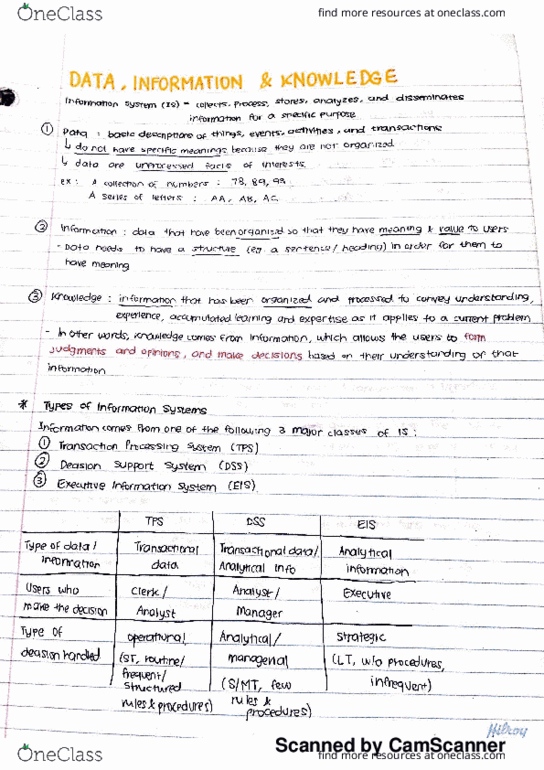 OneClass
find more resources at oneclass.com
DATA, INFORMATION & KNOWLEDGE
Information System (IS) - collects, process, stores, analyzes, and disseminates
information for a specific purpose
① Data : basic descriptions of things, events, activities, and transactions
↳ do not have specific meanings because they are not organized
↳ data are unprocessed facts of interests.
ex: A collection of numbers : 78, 89, 93
A series of letters : AA, AB, AC
② Information : data that have been organized so that they have meaning & value to users
- Data needs to have a structure (eg. a sentence / heading) in order for them to
have meaning
③ Knowledge : information that has been organized and processed to convey understanding,
experience, accumulated learning and expertise as it applies to a current problem
- In other words, knowledge comes from information, which allows the users to form
judgments and opinions, and make decisions based on their understanding of that
information
* Types of Information Systems
Information comes from one of the following 3 major classes of IS :
① Transaction Processing System (TPS)
② Decision Support System (DSS)
③ Executive Information System (EIS)
TPS DSS EIS
Type of data / Transactional Transactional data / Analytical
information data Analytical info information
Users who Clerk / Analyst / Executive
make the decision Analyst Manager
Type of operational Analytical / strategic
decision handled (ST, routine / managerial (LT, w/o procedures,
frequent / (S/MT, few infrequent)
structured rules &
rules & procedures) procedures)
Hilroy
Scanned by CamScanner
OneClass
find more resources at oneclass.com